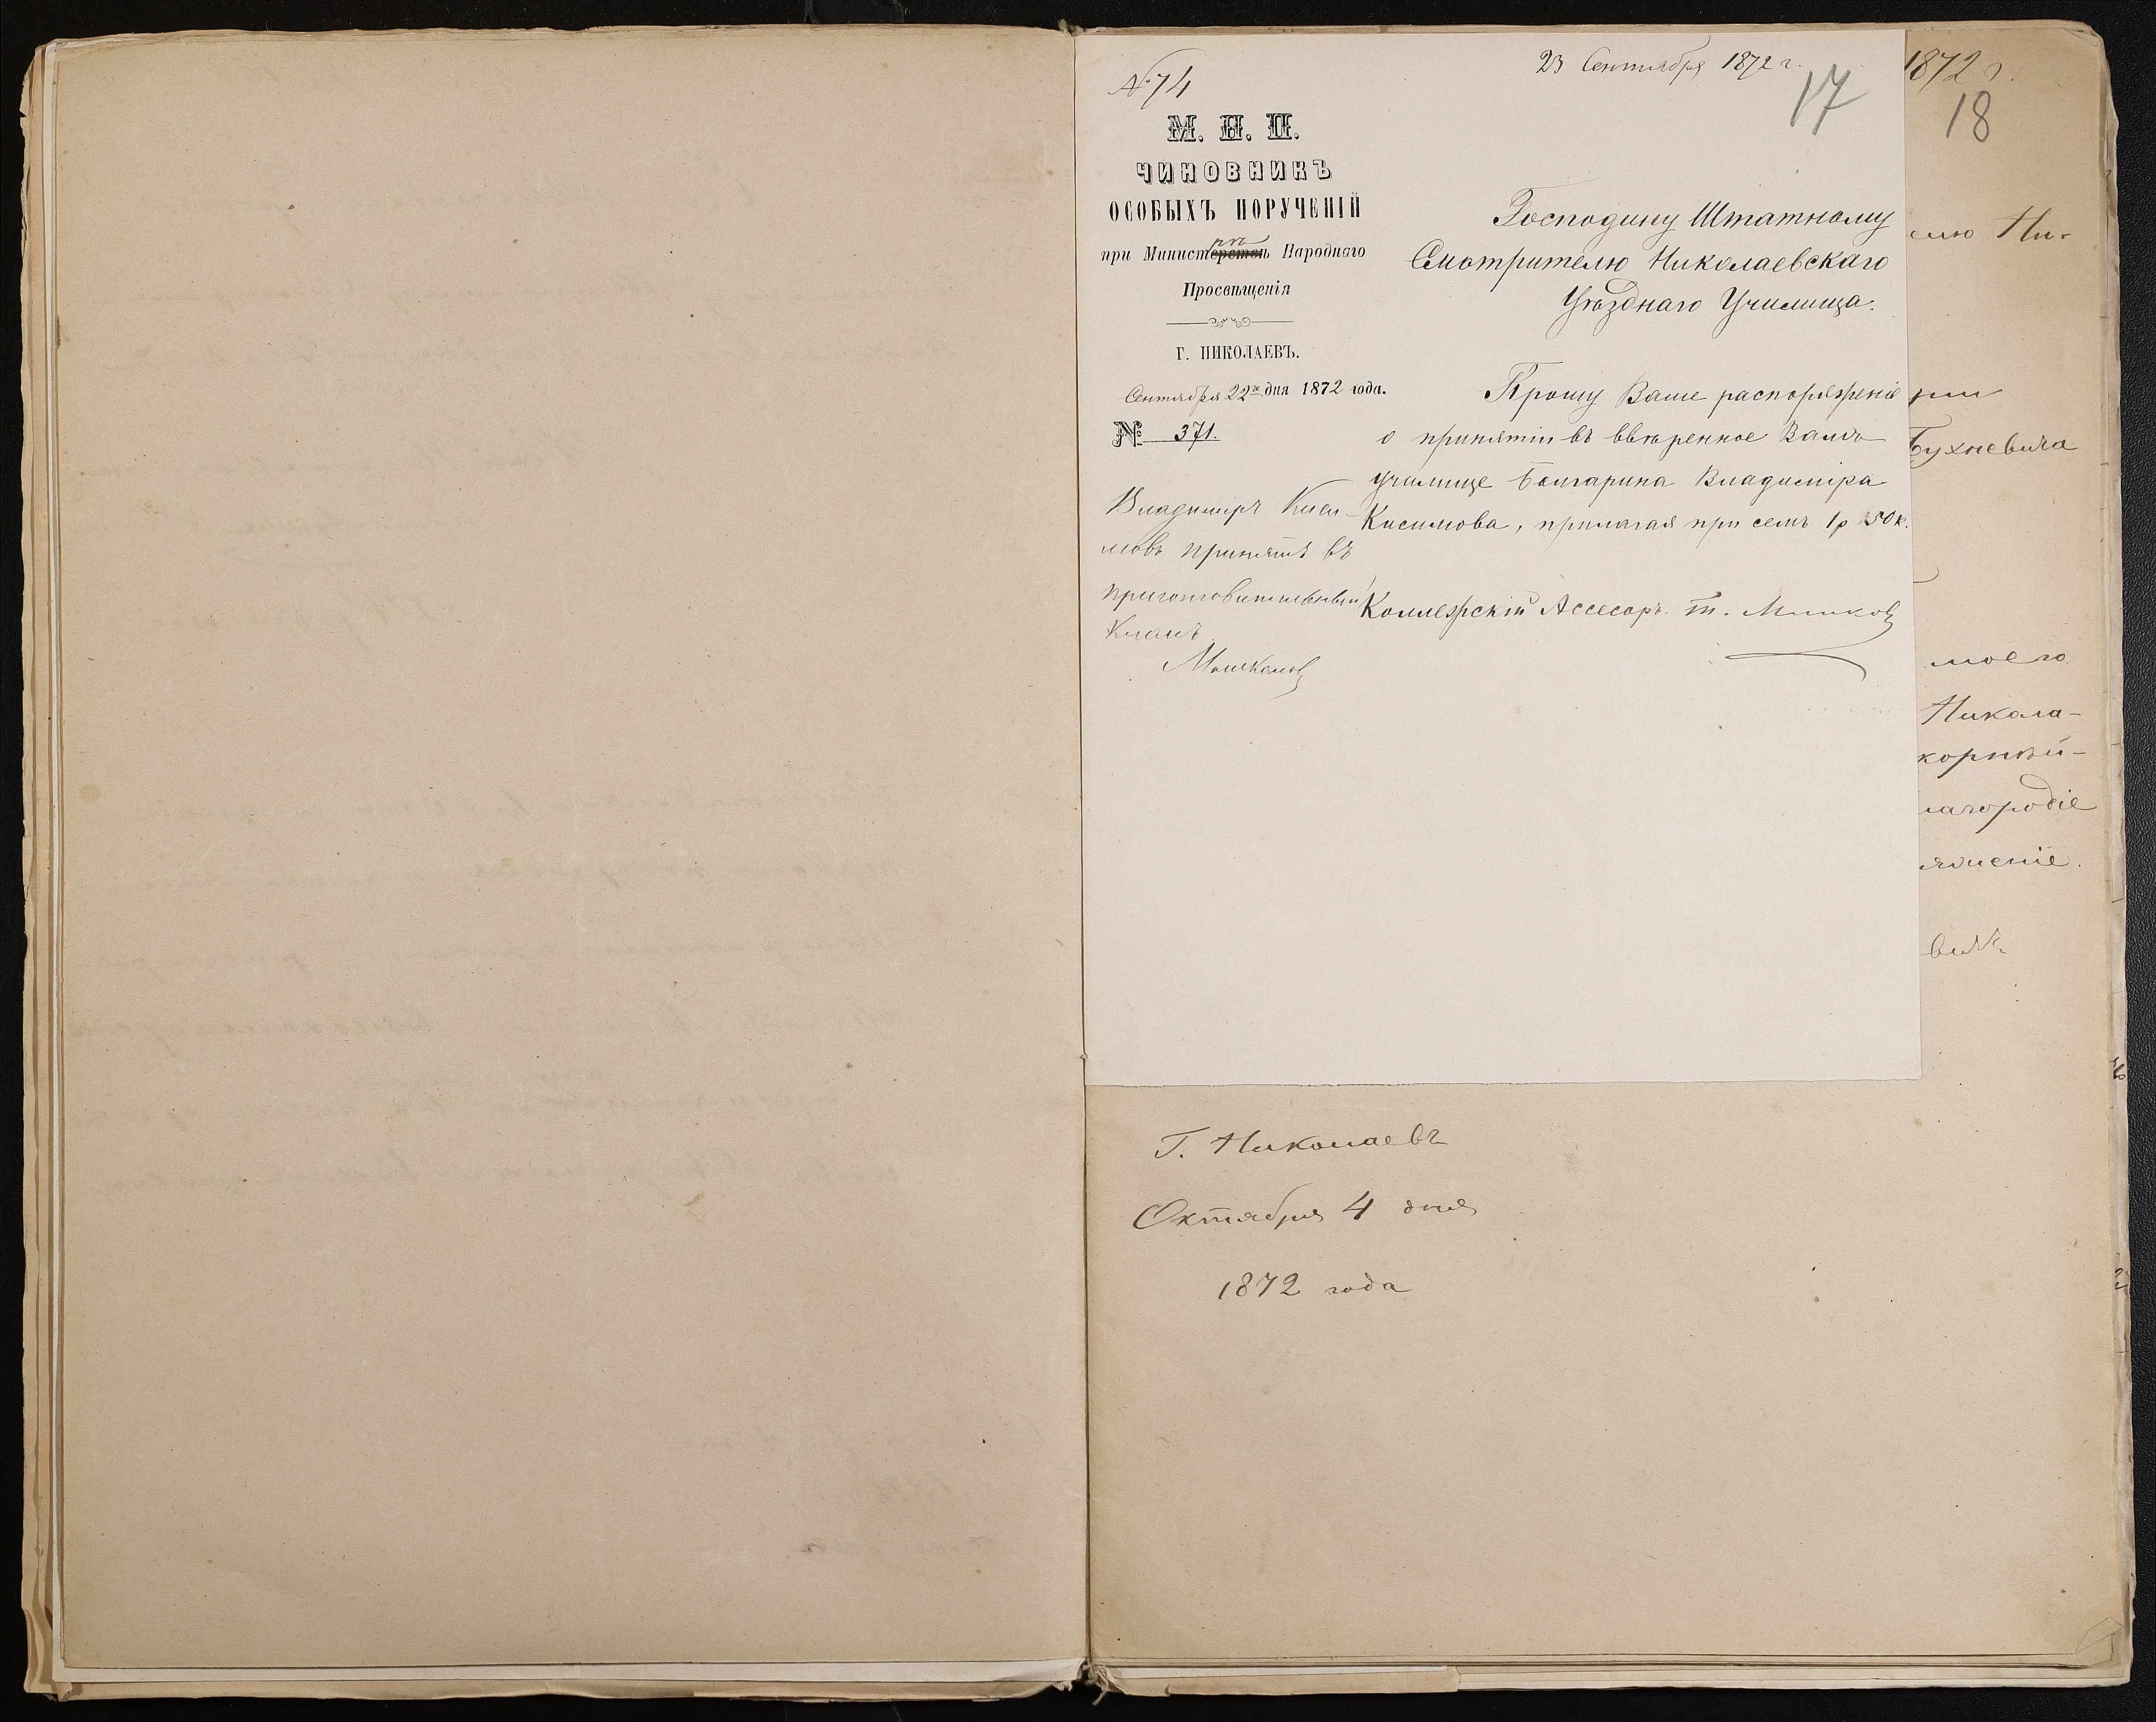 № 74
23 Сентября 1872 г.
17
М. Н. П.
ЧИНОВНИКЪ
ОСОБЫХЪ ПОРУЧЕНІЙ
при Министерствѣ Народнаго
рѣ
Просвѣщенія
Г. НИКОЛАЕВЪ.
Сентября 22го дня 1872 года.
№ 371.
Господину Штатному
Смотрителю Николаевскаго
Уѣзднаго Училища.
Прошу Ваше распоряженіе
о принятіи въ ввѣренное Вамъ
училище Болгарина Владиміра
Касимова, прилагая при семъ 1 р 50 к.
Коллежскій Ассесоръ Т. Минковъ
Владиміръ Каси-
мовъ принятъ въ
приготовительный
классъ
1872 г.
18
елю Ни-
Бухневича
моего
Никола-
корнѣй-
лагородіе
яженіе.
вичъ
Г. Николаевъ
Октября 4 дня
1872 года